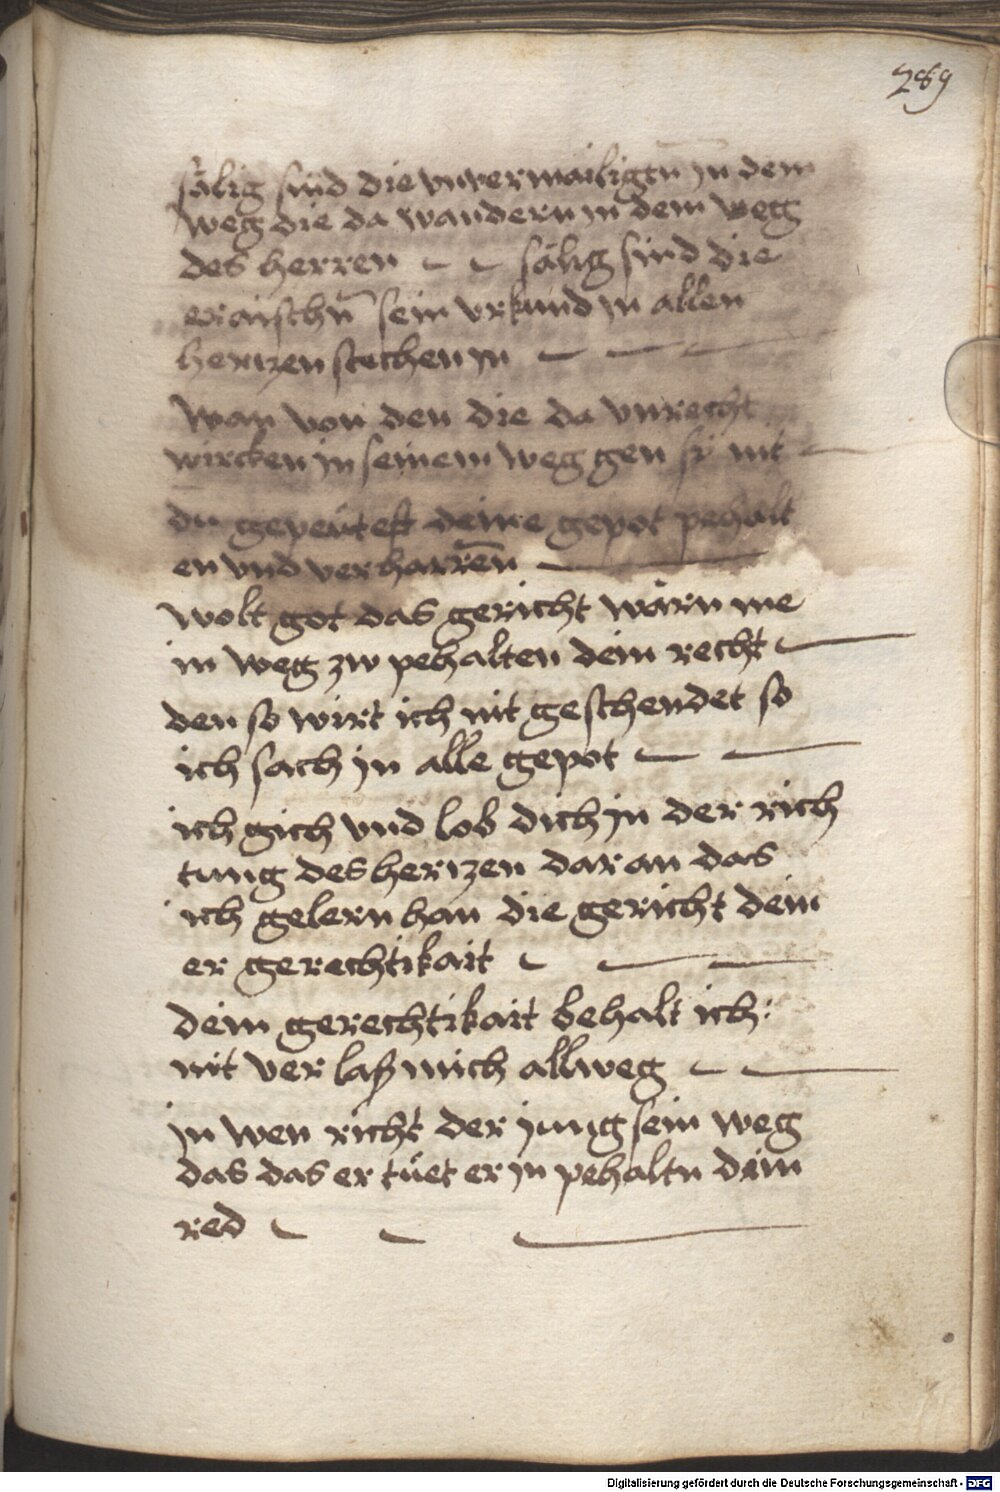 289
sälig sind die vnvermailigtn̄ jn dem
weg die da wandern jn dem weg
des herren sälig sind die
eraischn̄ sein vrkund jn allen
herczen suechen jn
wan von den die da vnrecht
wircken jn seinem weg gen si nit
du gepeutest deine gepot pehalt
en vnd verharrēn
wolt got das gericht wärn me
in weg zw pehalten dein recht
den so wirt ich nit geschendet so
ich sach jn alle gepot
ich gich vnd lob dich jn der rich
tung des herczen dar an das
ich gelern han die gericht dein
er gerechtikait
dein gerechtikait behalt ich:
nit ver laß mich allweg
jn wen richt der jung sein weg
das das er tüet er jn pehaltn dein
red
Digitalisierung gefördert durch die Deutsche Forschungsgemeinschaft - DFG